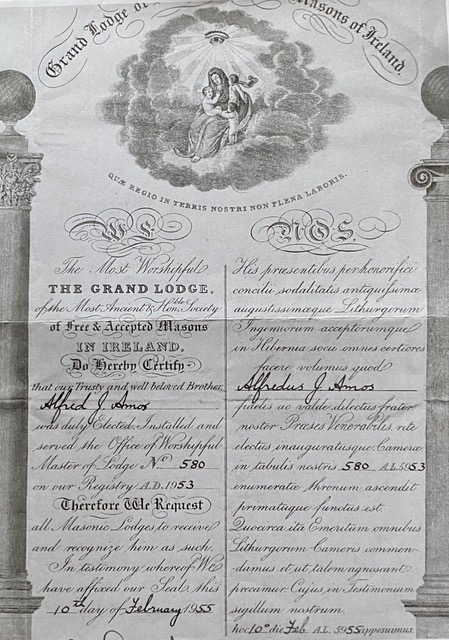 Grand Lodge of
Masons of Ireland.
QUÆ REGIO IN TERRIS NOSTRI NON PLENA LABORIS.
WE
The Most Worshipful
THE GRAND LODGE,
of the Most Ancient & Honble Society
of Free & Accepted Masons
IN IRELAND,
Do Hereby Certify
that our Trusty and well beloved Brother
Alfred J. Amos
was duly Elected, Installed and
served the Office of Worshipful
Master of Lodge No 580
on our Registry A.D. 1953
Therefore We Request
all Masonic Lodges to receive
and recognize him as such.
In testimony whereof We
have affixed our Seal this
10th day of February 1955
NOS.
His præsentibus perhonorifici
concilii sodalitatis antiquissimæ
augustissimæque Lithurgorum
Ingemorum acceptorumque
in Hibernia socii omnes certiores
facere volumus quod
Alfredus J Amos
fidelis ac valde dilectus frater
noster Præses Venerabilis rite
electus inauguratusque Cameræ
in tabulis nostris 580 A.L. 5953
enumeratæ thronum ascendit
primatuque functus est.
Quocirca ita Emeritum omnibus
Lithurgorum Cameris commen-
damus et ut talem agnoscant
precamur Cujus in Testimonium
sigillum nostrum.
hoc 10o die Feb A.L. 5955 apposuimus.